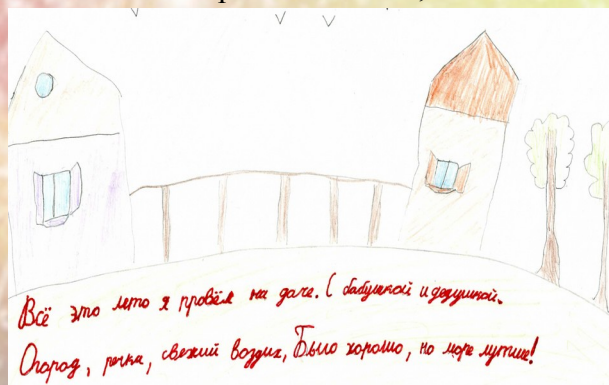 Всё это лето я провёл на даче. С бабушкой и дедушкой.
Огород, речка, свежий воздух, Было хорошо, но море лучше!